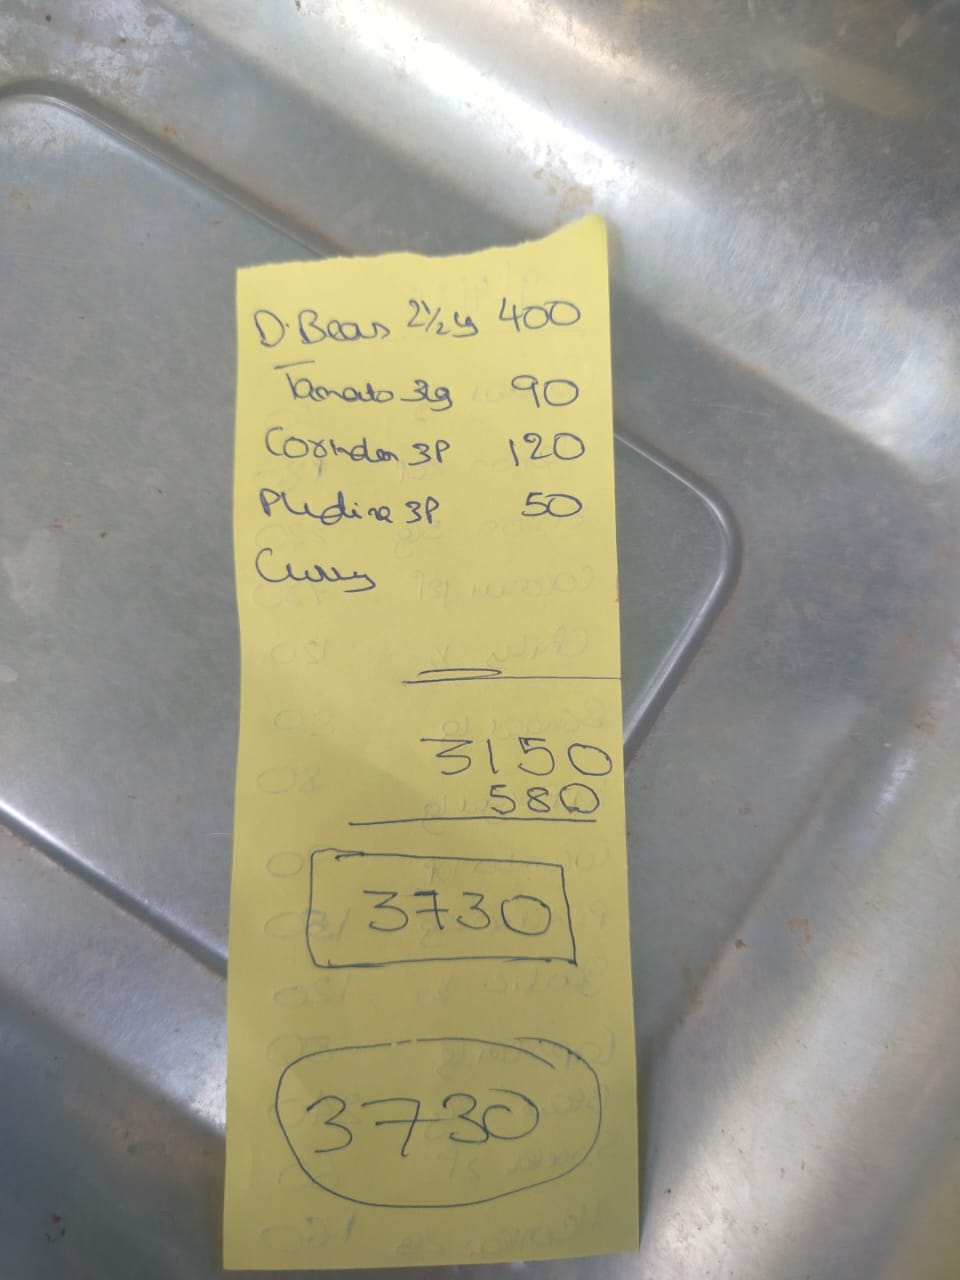 D.Beans 2½kg 400
Tamato 3kg 90
Corinder 3P 120
Pudina 3P 50
Curry
3150
580
3730
3730